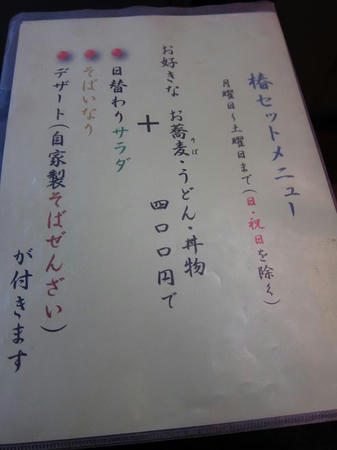 椿セットメニュー
月曜日～土曜日まで(日・祝日を除く)
お好きな お蕎麦・うどん・丼物
そば
＋ 四〇〇円で
日替わりサラダ
そばいなり
デザート(自家製そばぜんざい)
が付きます